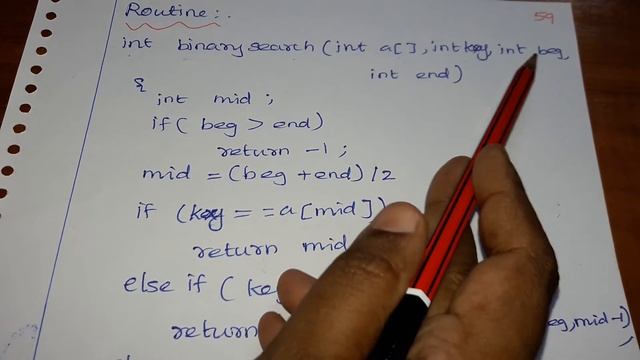 Routine:.
59
int binary search (int a[], int key, int beg,
int end)
{
int mid ;
if ( beg > end)
return -1 ;
mid = (beg + end) / 2
if (key = = a [mid])
return mid
else if (
return eg, mid-1)